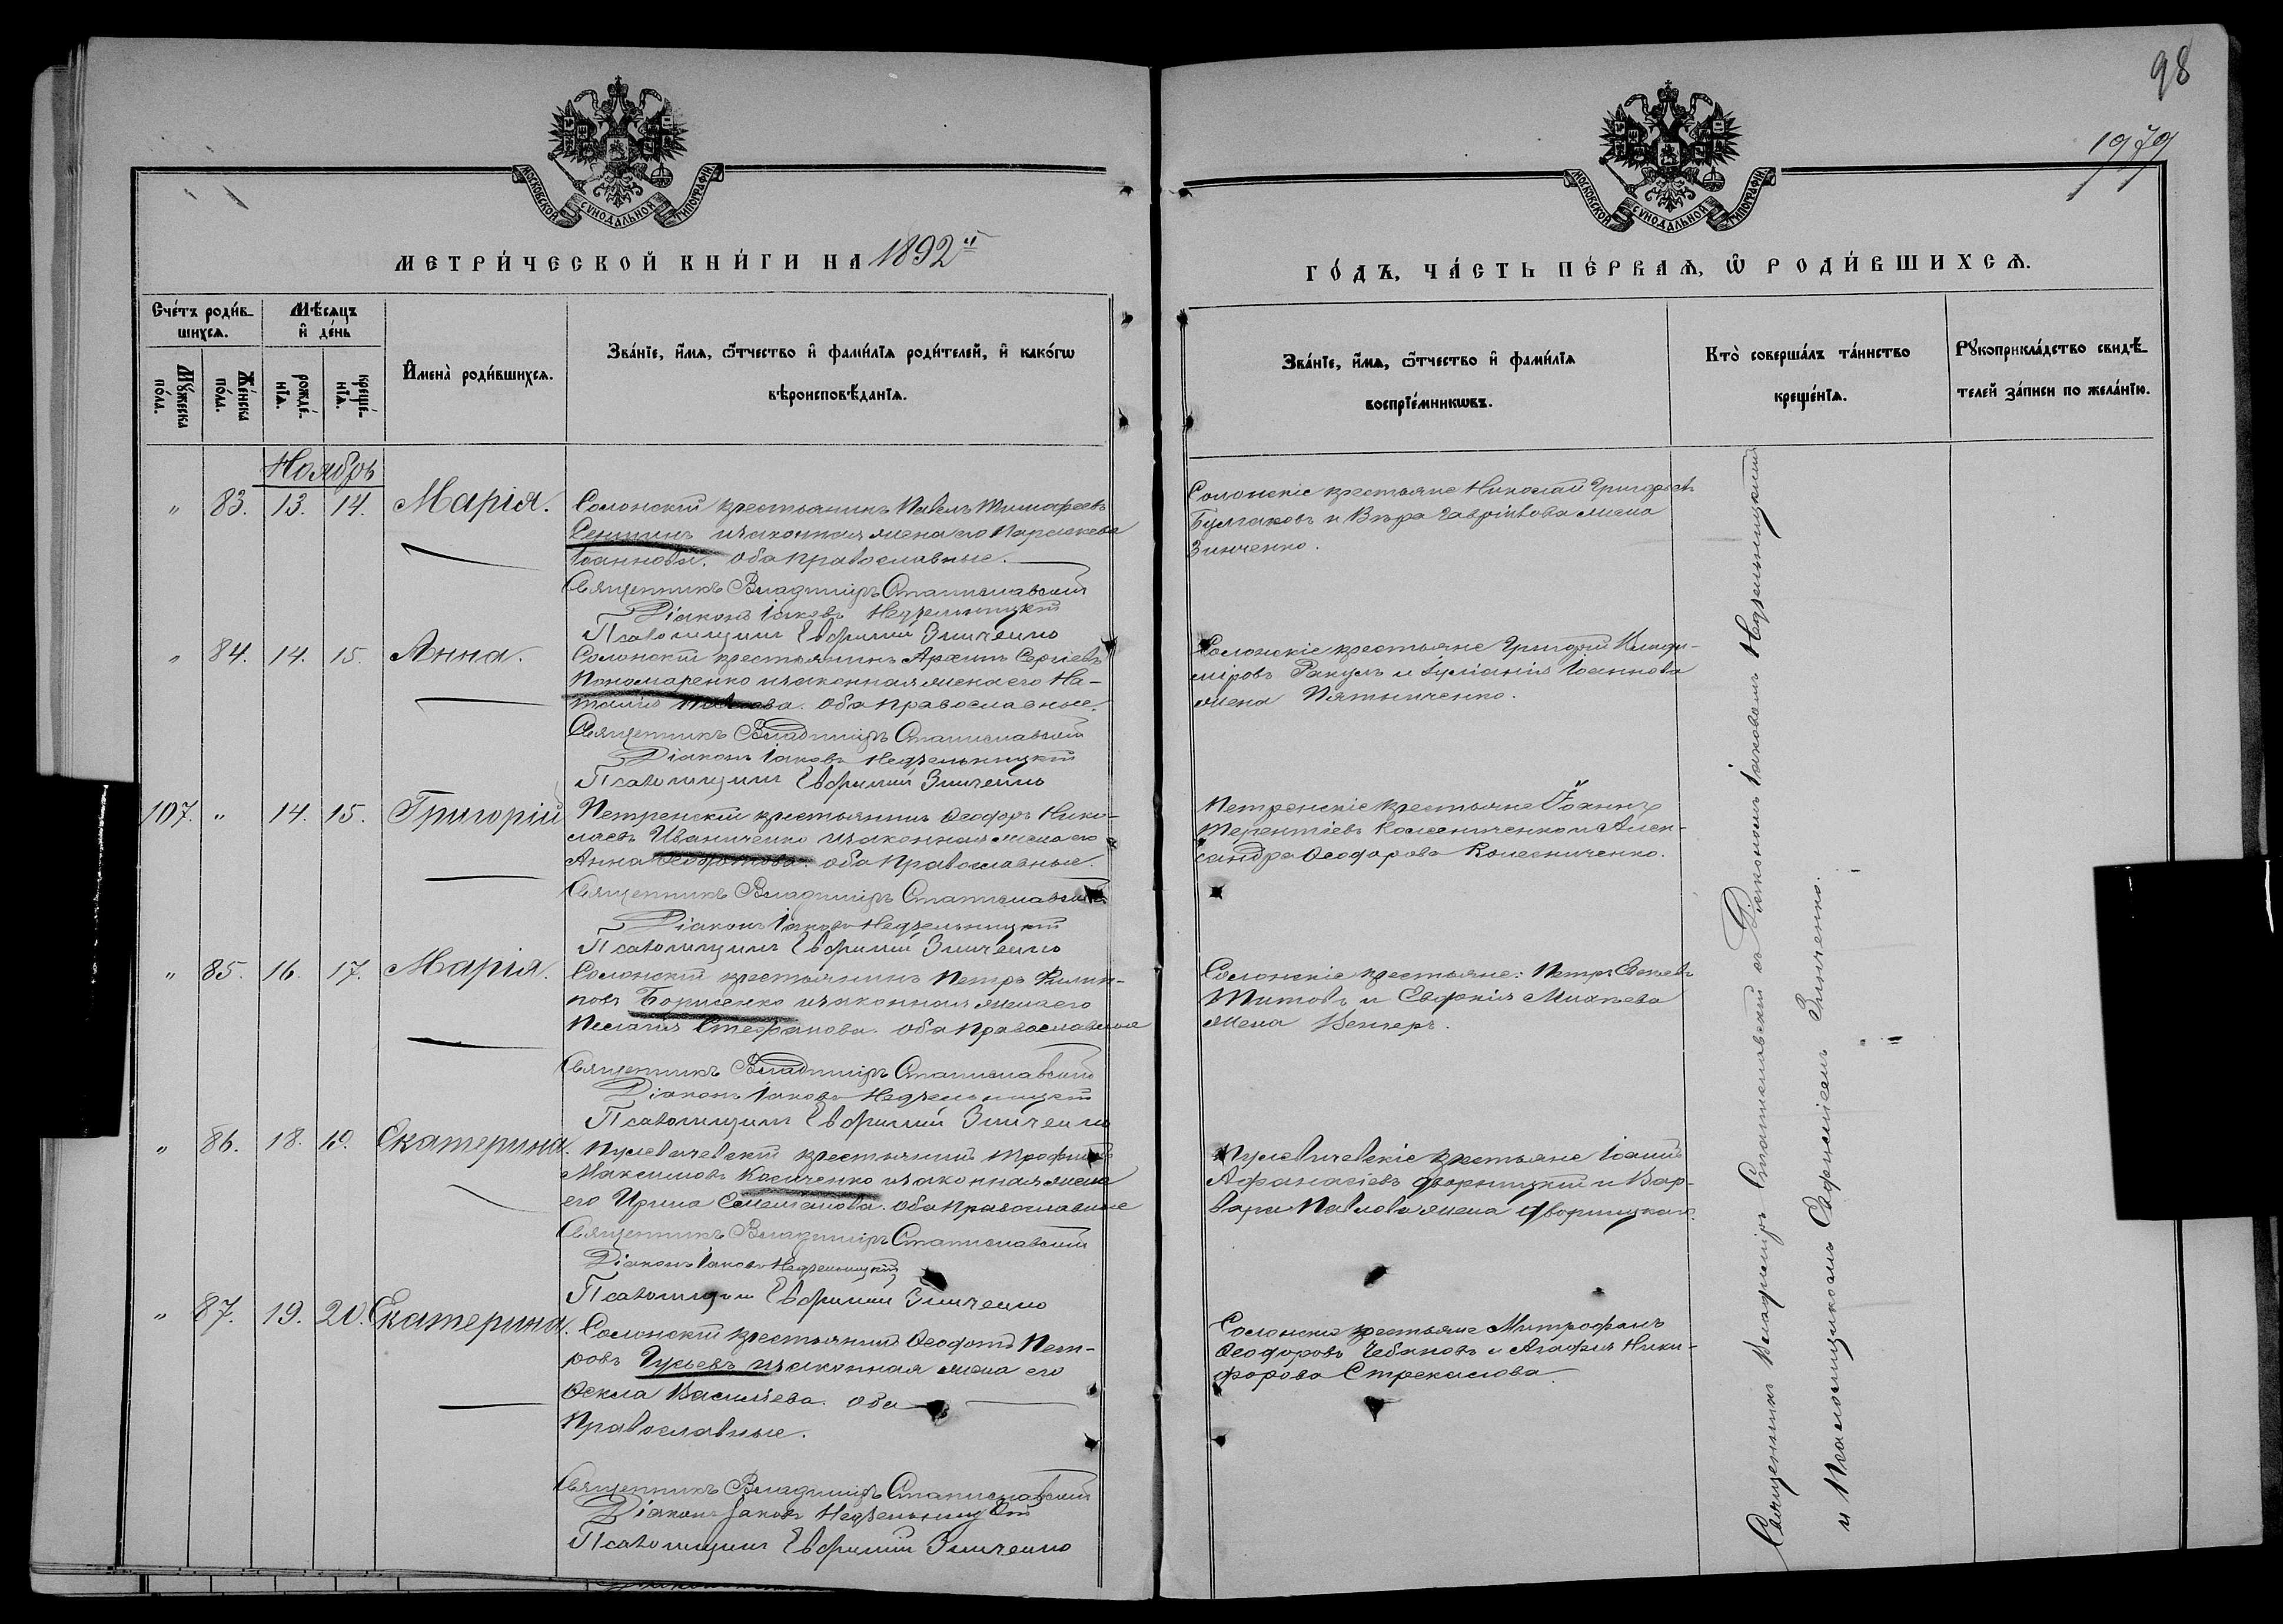 98
1979
МОСКОВСКОЙ СѴНОДАЛЬНОЙ ТИПОГРАФІИ
МОСКОВСКОЙ СѴНОДАЛЬНОЙ ТИПОГРАФІИ
МЕТРИ́ЧЕСКОЙ КНИ́ГИ НА 1892й
ГО́ДЪ, ЧА́СТЬ ПЕ́РВАѦ, Ѡ҆ РОДИ́ВШИХСѦ.
Счétъ роди́вшихсѧ.
Мꙋ́жеска по́ла.
Же́нска по́ла.
Мѣ́сѧцъ и҆ де́нь
рожде́нїѧ.
креще́нїѧ.
И҆мена̀ роди́вшихсѧ.
Зва́нїе, и҆́мѧ, ѻ҆́тчество и҆ фами́лїѧ роди́телей, и҆ како́гѡ
вѣроисповѣ́данїѧ.
Зва́нїе, и҆́мѧ, ѻ҆́тчество и҆ фами́лїѧ
воспрїе́мникѡвъ.
Кто̀ соверша́лъ та́инство
креще́нїѧ.
Рꙋкоприкла́дство свидѣ́телей за́писи по жела́нїю.
Ноябрь
" 83. 13. 14. Марія.
Солонскій крестьянинъ Павелъ Тимофеевъ
и законная жена его Параскева
Іоаннова. оба православные.
Священникъ Владиміръ Станиславскій
Діаконъ Іаковъ Недзельницкій
Псаломщикъ Евфимій Зинченко
Солонскіе крестьяне Николай Григорьевъ
Булгаковъ и Вѣра Гавріилова жена
Зинченко.
" 84. 14. 15. Анна.
Солонскій крестьянинъ Архипъ Сергіевъ
Пономаренко и законная жена его На-
талія Павлова. оба православные.
Священникъ Владиміръ Станиславскій
Діаконъ Іаковъ Недзельницкій
Псаломщикъ Евфимій Зинченко
Солонскіе крестьяне Григорій Влади-
міровъ и Іуліанія Іоаннова
жена Пятниченко.
107. " 14. 15. Григорій
Петренскій крестьянинъ Ѳеодоръ Нико-
лаевъ Иваниченко и законная жена его
Анна оба православные.
Священникъ Владиміръ Станиславскій
Діаконъ Іаковъ Недзельницкій
Псаломщикъ Евфимій Зинченко
Петренскіе крестьяне Іоаннъ
Терентіевъ Колесниченко и Алек-
сандра Ѳеодорова Колесниченко.
" 85. 16. 17. Марія.
Солонскій крестьянинъ Петръ Филип-
повъ Борисенко и законная жена его
Пелагія Стефанова. оба православные
Священникъ Владиміръ Станиславскій
Діаконъ Іаковъ Недзельницкій
Псаломщикъ Евфимій Зинченко
Солонскіе крестьяне: Петръ
Титовъ и Евфкія Михѣева
жена Венгеръ.
" 86. 18. 19. Екатерина.
Пулевичевскій крестьянинъ Трофимъ
Максимовъ Косиченко и законная жена
его Ирина оба православные
Священникъ Владиміръ Станиславскій
Діаконъ Іаковъ Недзельницкій
Псаломщикъ Евфимій Зинченко
Пулевичевскіе крестьяне Іоаннъ
Афанасіевъ Дворницкій и Вар-
вара Павлова жена Дворницкая.
" 87. 19. 20. Екатерина.
Солонскій крестьянинъ Ѳеодотъ Пет-
ровъ Гусьевъ и законная жена его
Ѳекла Василіева. оба
Православные.
Священникъ Владиміръ Станиславскій
Діаконъ Іаковъ Недзельницкій
Псаломщикъ Евфимій Зинченко
Солонскіе крестьяне Митрофанъ
Ѳеодоровъ Чебановъ и Агафія Ники-
форова Стрекалова.
Священникъ Владиміръ Станиславскій съ Діакономъ Іаковомъ Недзельницкимъ
и Псаломщикомъ Евфиміемъ Зинченко.